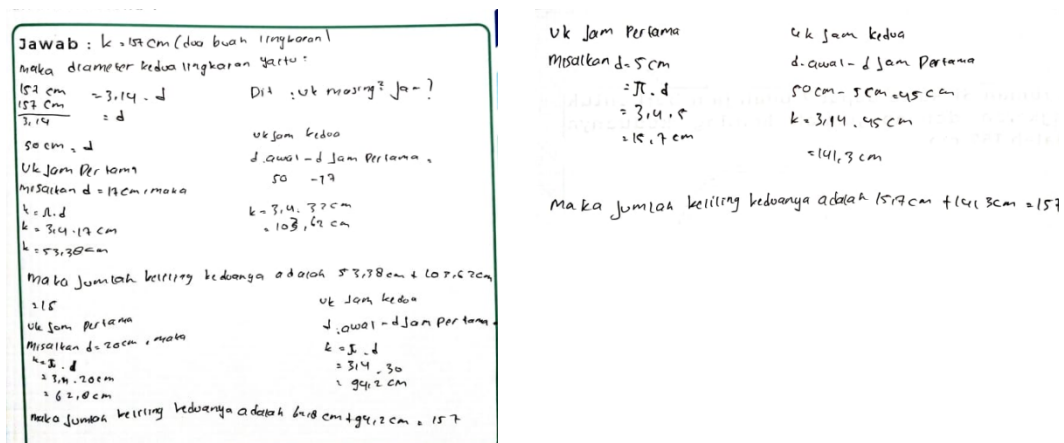 Jawab : k = 157 cm (dua buah lingkaran)
maka diameter kedua lingkaran yaitu :
157 cm = 3,14 . d
157 cm = d
3,14
50 cm = d
Dit : uk masing²
Uk Jam Pertama
misalkan d = 17 cm, maka
k = π.d
k = 3,14 . 17 cm
k = 53,38 cm
uk jam kedua
d.awal - d jam pertama =
50 - 17
k = 3,14 . 33 cm
= 103,62 cm
maka jumlah keliling keduanya adalah 53,38 cm + 103,62 cm
Uk Jam pertama
misalkan d = 20 cm, maka
k = π . d
= 3,14 . 20 cm
= 62,8 cm
uk Jam kedua
d.awal - d Jam pertama
k = π . d
= 3,14 . 30
= 94,2 cm
maka jumlah keliling keduanya adalah 62,8 cm + 94,2 cm = 157
Uk Jam Pertama
Misalkan d = 5 cm
= π . d
= 3,14 . 5
= 15,7 cm
uk jam kedua
d.awal - d jam Pertama
50 cm - 5 cm = 45 cm
k = 3,14 . 45 cm
= 141,3 cm
maka jumlah keliling keduanya adalah 15,7 cm + 141,3 cm = 157